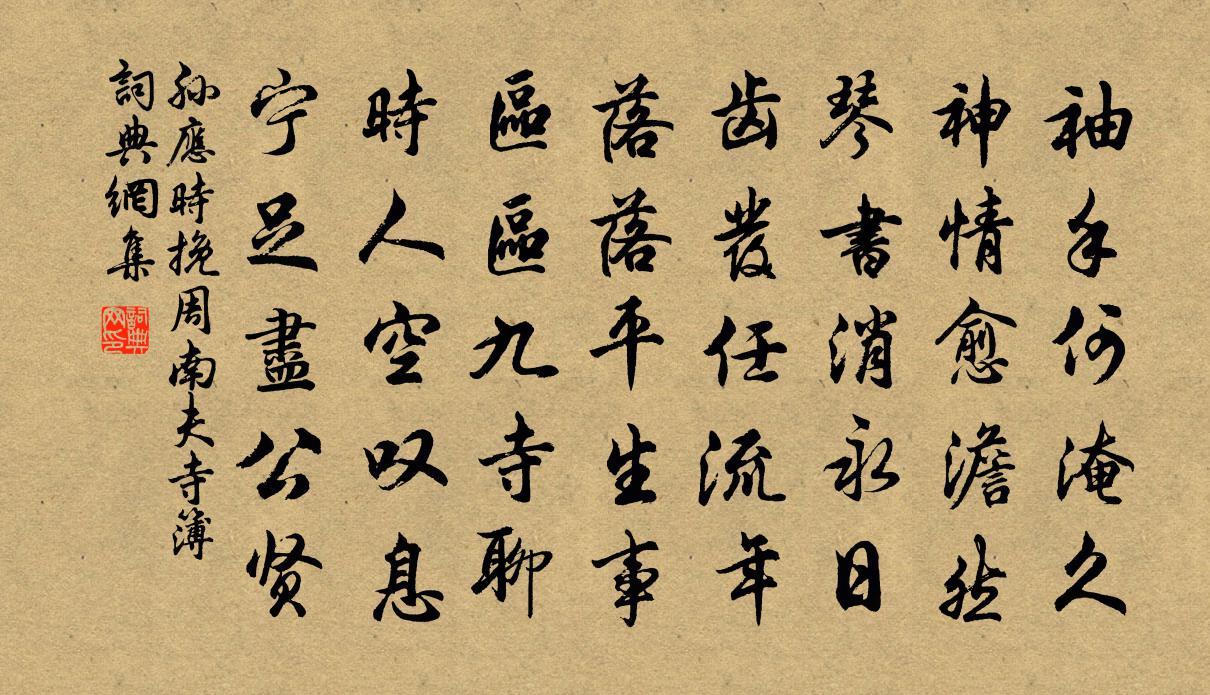 袖手何淹久
神情愈澹然
琴書消永日
齿发任流年
落落平生事
區區九寺聊
時人空叹息
宁足盡公贤
孙應時挽周南夫寺簿
詞典網集
詞典网印